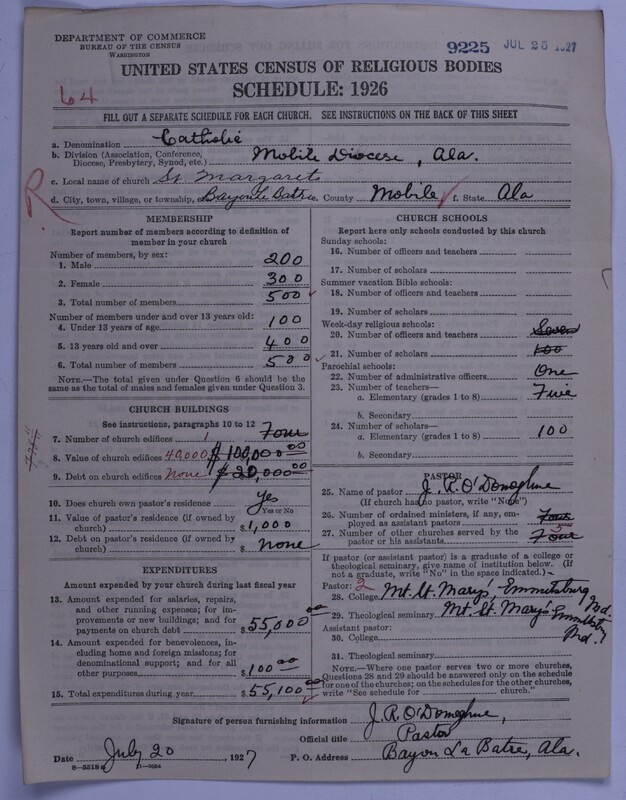 DEPARTMENT OF COMMERCE
BUREAU OF THE CENSUS
WASHINGTON
9225 JUL 25 1927
UNITED STATES CENSUS OF RELIGIOUS BODIES
SCHEDULE: 1926
64
FILL OUT A SEPARATE SCHEDULE FOR EACH CHURCH. SEE INSTRUCTIONS ON THE BACK OF THIS SHEET
a. Denomination Catholic
b. Division (Association, Conference, Diocese, Presbytery, Synod, etc.) Mobile Diocese, Ala.
c. Local name of church St. Margaret
R
d. City, town, village, or township, Bayou La Batre e. County Mobile f. State Ala
MEMBERSHIP
Report number of members according to definition of
member in your church
Number of members, by sex:
1. Male 200
2. Female 300
3. Total number of members 500
Number of members under and over 13 years old:
4. Under 13 years of age 100
5. 13 years old and over 400
6. Total number of members 500
NOTE.—The total given under Question 6 should be the
same as the total of males and females given under Question 3.
CHURCH BUILDINGS
See instructions, paragraphs 10 to 12
7. Number of church edifices 1 Four
8. Value of church edifices 40,000 $100,000.00
9. Debt on church edifices None $20,000.00
10. Does church own pastor's residence Yes
Yes or No
11. Value of pastor's residence (if owned by
church) $1,000
12. Debt on pastor's residence (if owned by
church) $ None
EXPENDITURES
Amount expended by your church during last fiscal year
13. Amount expended for salaries, repairs,
and other running expenses; for im-
provements or new buildings; and for
payments on church debt $55,000.00
14. Amount expended for benevolences, in-
cluding home and foreign missions; for
denominational support; and for all
other purposes $100.00
15. Total expenditures during year $55,100.00
CHURCH SCHOOLS
Report here only schools conducted by this church
Sunday schools:
16. Number of officers and teachers
17. Number of scholars
Summer vacation Bible schools:
18. Number of officers and teachers
19. Number of scholars
Week-day religious schools:
20. Number of officers and teachers Seven
21. Number of scholars 100
Parochial schools:
22. Number of administrative officers One
23. Number of teachers—
a. Elementary (grades 1 to 8) Five
b. Secondary
24. Number of scholars—
a. Elementary (grades 1 to 8) 100
b. Secondary
PASTOR
25. Name of pastor J. R. O'Donoghue
(If church has no pastor, write "None")
26. Number of ordained ministers, if any, em-
ployed as assistant pastors Four
27. Number of other churches served by the
pastor or his assistants 3 Four
If pastor (or assistant pastor) is a graduate of a college or
theological seminary, give name of institution below. (If
not a graduate, write "No" in the space indicated.)
Pastor: 2
28. College Mt. St. Mary's, Emmitsburg Md.
29. Theological seminary Mt. St. Mary's Emmitsb. Md.
Assistant pastor:
30. College
31. Theological seminary
NOTE.—Where one pastor serves two or more churches,
Questions 28 and 29 should be answered only on the schedule
for one of the churches; on the schedules for the other churches,
write "See schedule for church."
Signature of person furnishing information J. R. O'Donoghue,
Official title Pastor
Date July 20, 1927 P. O. Address Bayou La Batre, Ala.